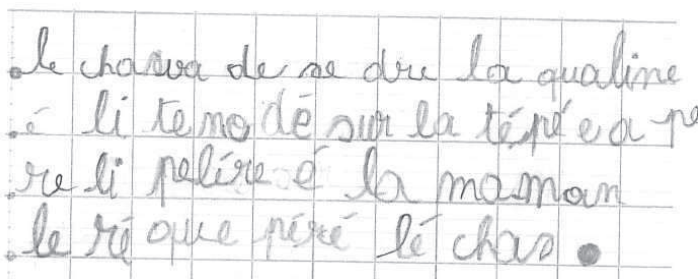 le chava de se dre la qualine
é li temodé sur la tépé e a pe
re li pelire é la maman
le ré que péré lé chas.